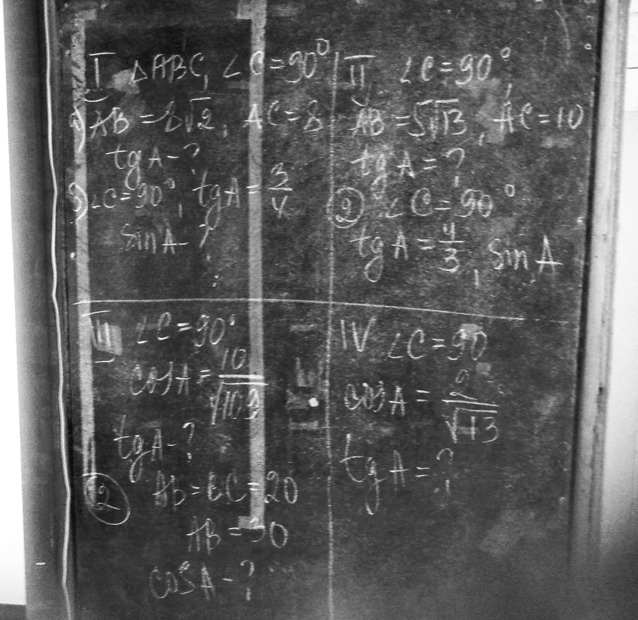 I △ABC, ∠C=90°
AB=8√2, AC=8
tgA-?
∠C=90°, tgA=3/4
sinA-?
II ∠C=90°
AB=5√13, AC=10
tgA=?
② ∠C=90°
tgA=4/3, sinA
III ∠C=90°
cosA=10/√109
tgA-?
② AB=BC=20
AB=30
cosA-?
IV ∠C=90
cosA=2/√13
tgA=?